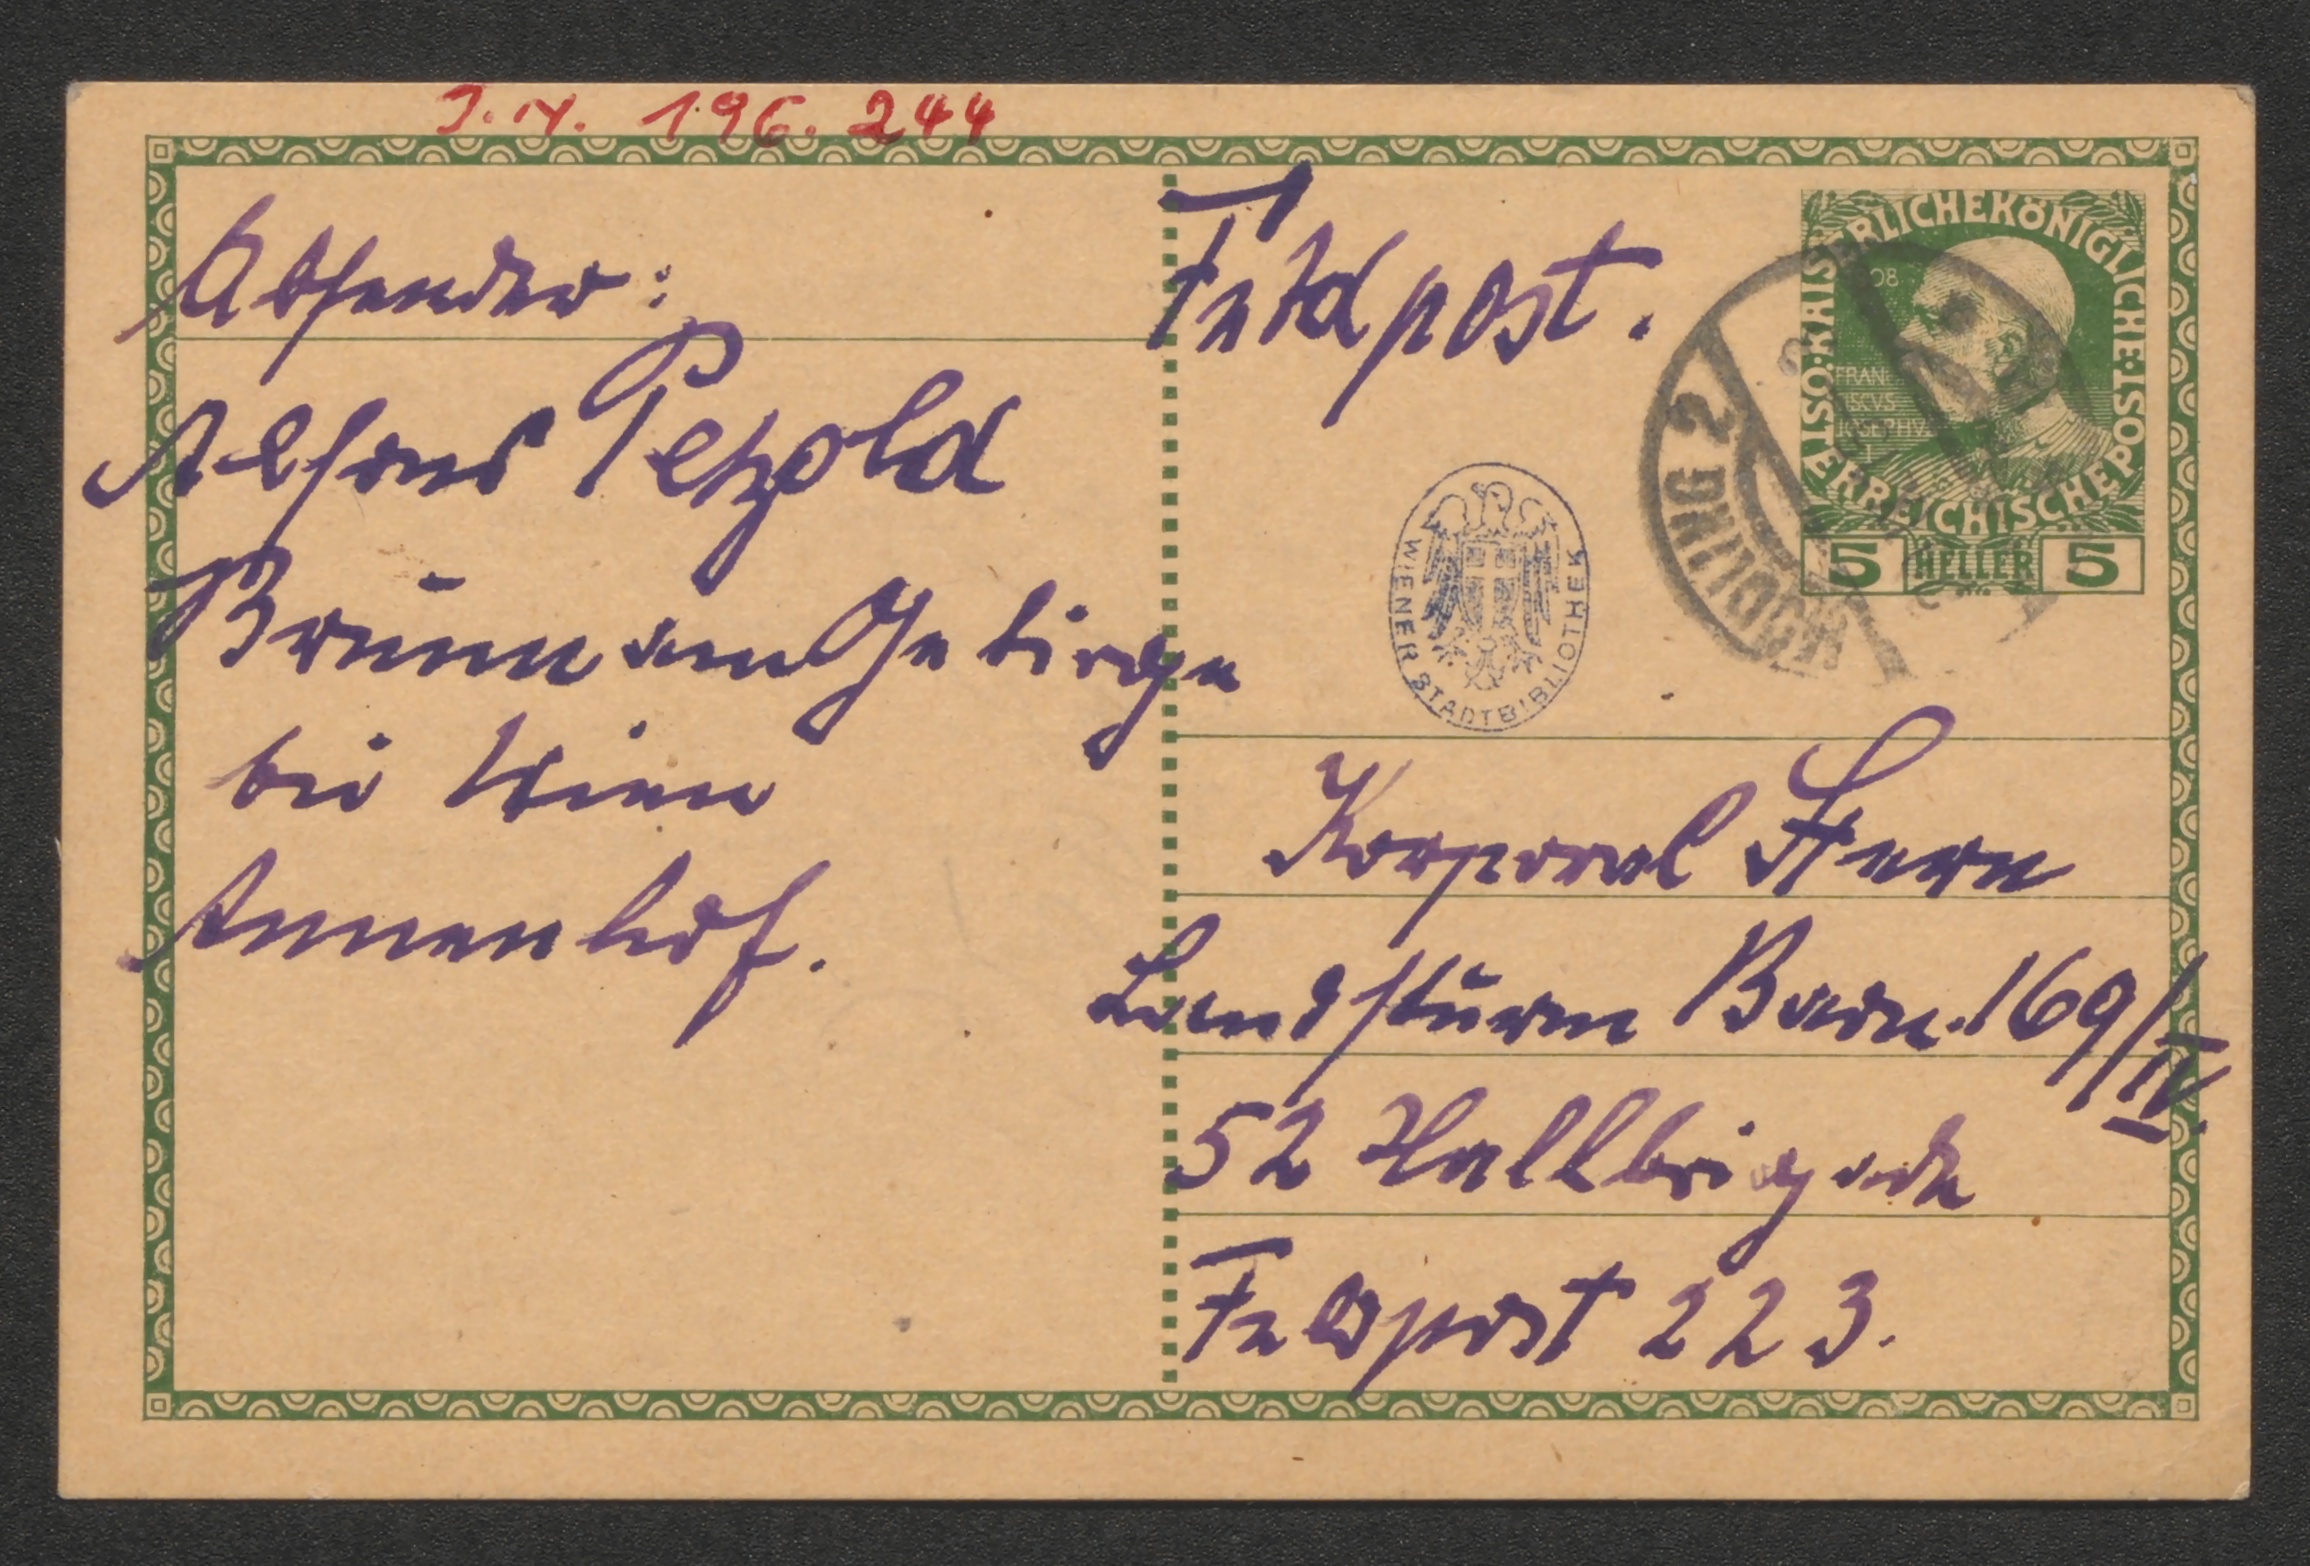 J.N. 196.244
Absender:
Alfons Petzold
Brunn am Gebirge
bei Wien
Annenhof.
Feldpost.
KAISERLICHE KÖNIGLICHE
ÖSTERREICHISCHE POST
FRANC
ISCVS
JOSEPHVS
5 HELLER 5
MÖDLING 2
WIENER STADTBIBLIOTHEK
Korporal Stern
Landsturm Baon. 169/IV.
52 Halbbrigade
Feldpost 223.